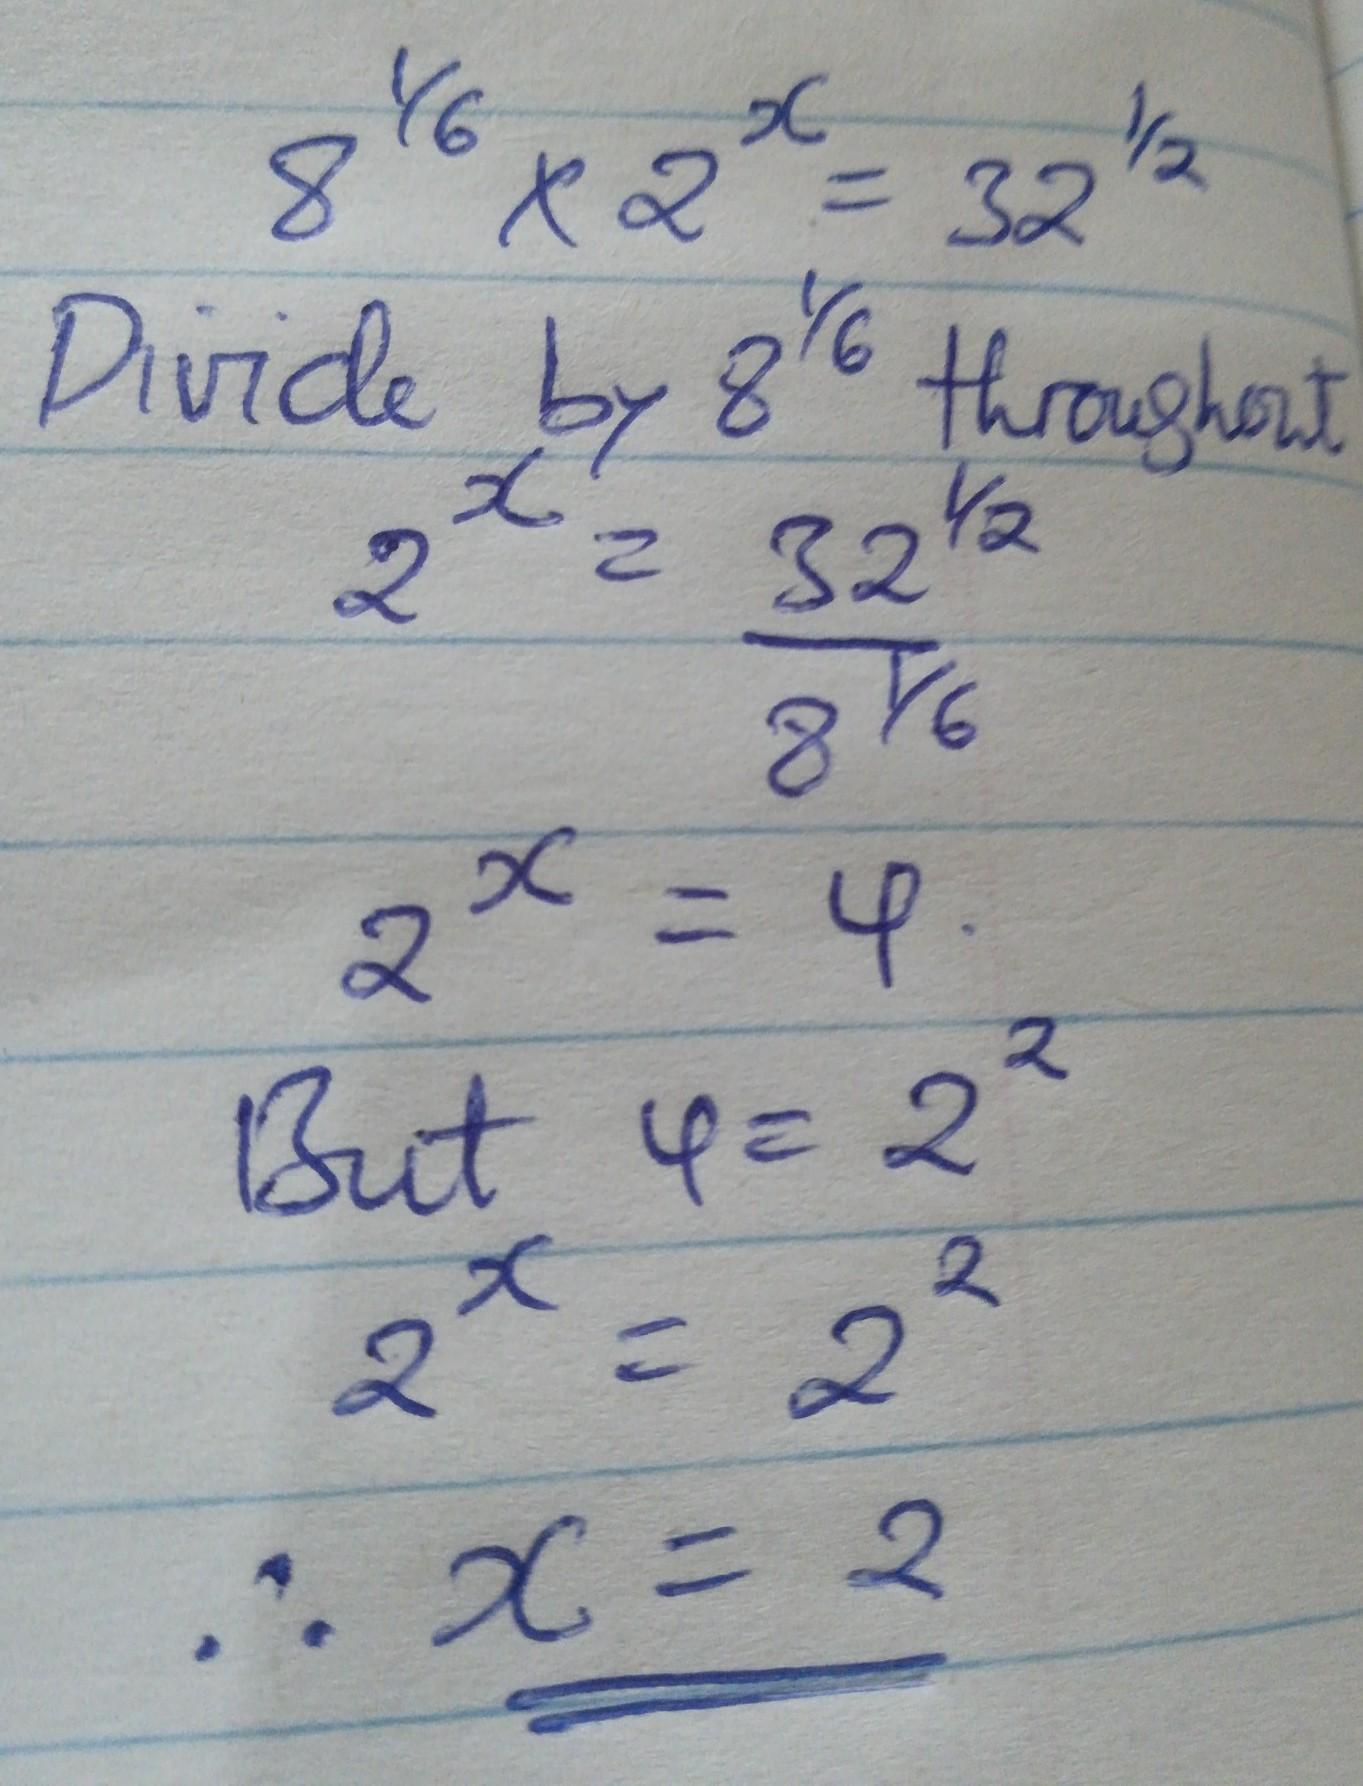 8^1/6 x 2^x = 32^1/2
Divide by 8^1/6 throughout
2^x = 32^1/2
8^1/6
2^x = 4.
But 4 = 2^2
2^x = 2^2
∴ x = 2